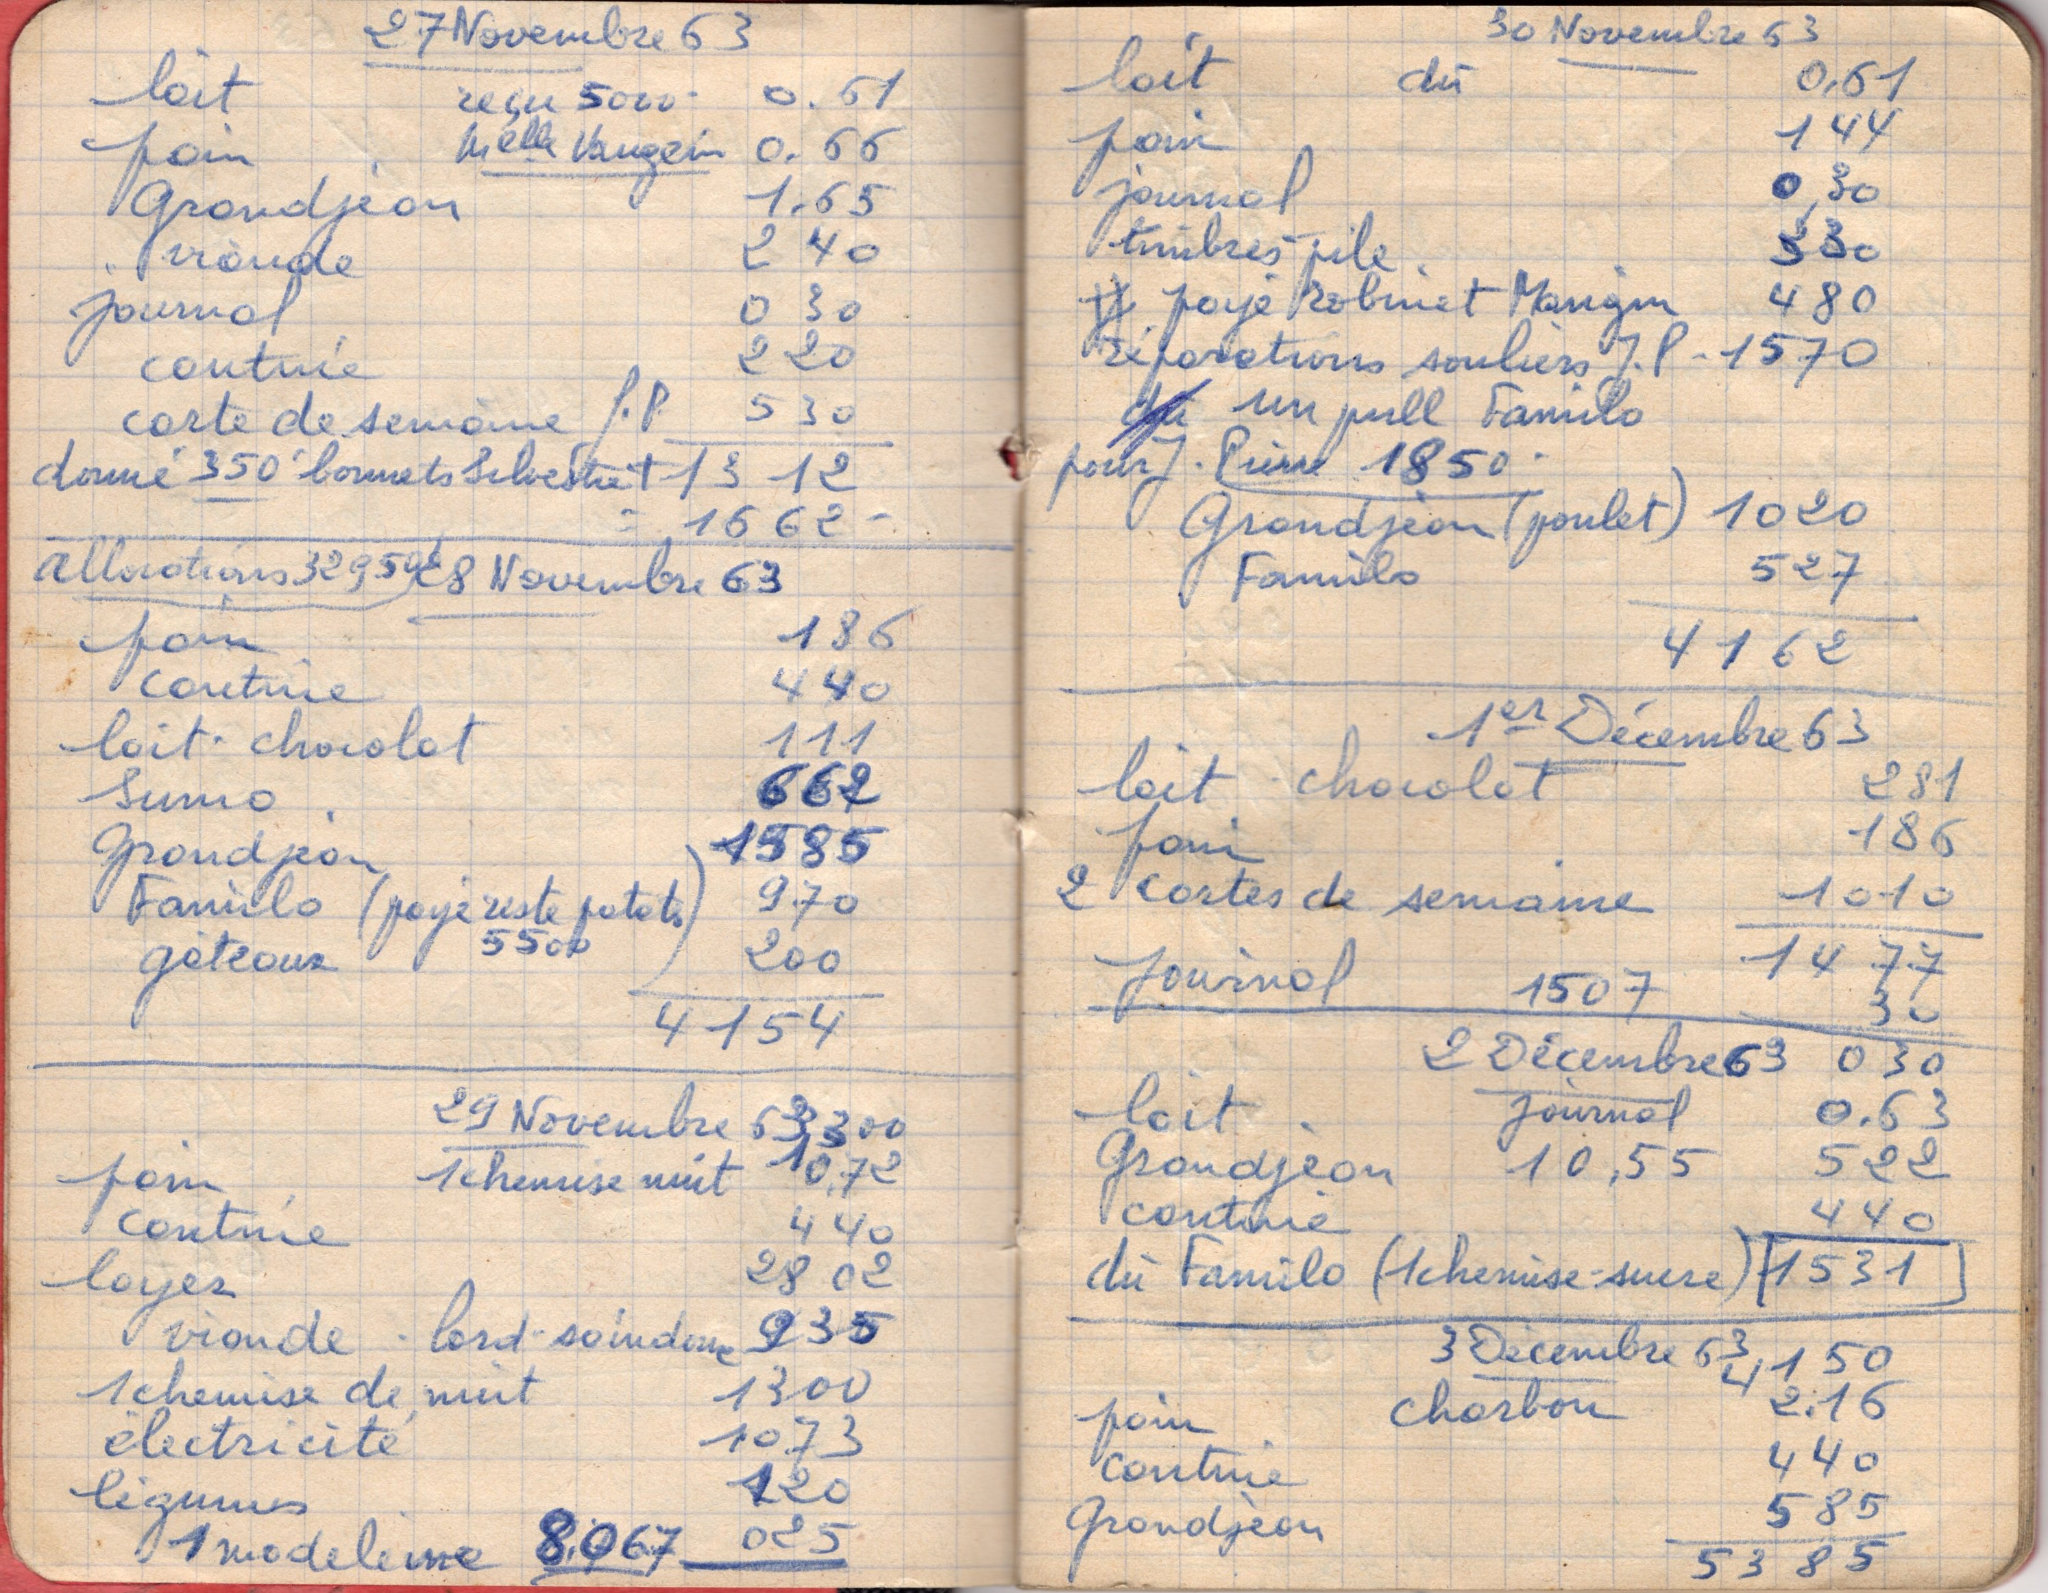 27 Novembre 63
lait reçu 5000 - 0.61
pain Melle Vaugein 0.66
Grandjean 1.65
viande 2 40
journal 0 30
cantine 2 20
carte de semaine J.P. 5 30
donné 350 bonnets Silvestre + 13 12
= 1662 -
Allocations 32950 28 Novembre 63
pain 186
cantine 440
lait - chocolat 111
Suma 662
Grandjean 1585
Familo (payé reste patates 970
5500)
gâteaux 200
4154
29 Novembre 63 3300
pain 1 chemise nuit 0,72
cantine 440
loyer 28 02
viande - lard - saindoux 935
1 chemise de nuit 1300
électricité 1073
légumes 120
1 madeleine 8.067 025
30 Novembre 63
lait dû 0,61
pain 144
journal 0,30
timbres pile 330
payé robinet Mangin 480
réparations souliers J.P - 1570
dû un pull Familo
pour J. Pierre 1850 -
Grandjean (poulet) 1020
Familo 527
4162
1er Décembre 63
lait - chocolat 281
pain 186
2 cartes de semaine 1010
14 77
journal 1507 30
2 Décembre 63 0 30
lait journal 0.63
Grandjean 10,55 522
cantine 440
dû Familo (1 chemise - sucre) [1531]
3 Décembre 63 4,150
pain charbon 2.16
cantine 440
Grandjean 585
5385